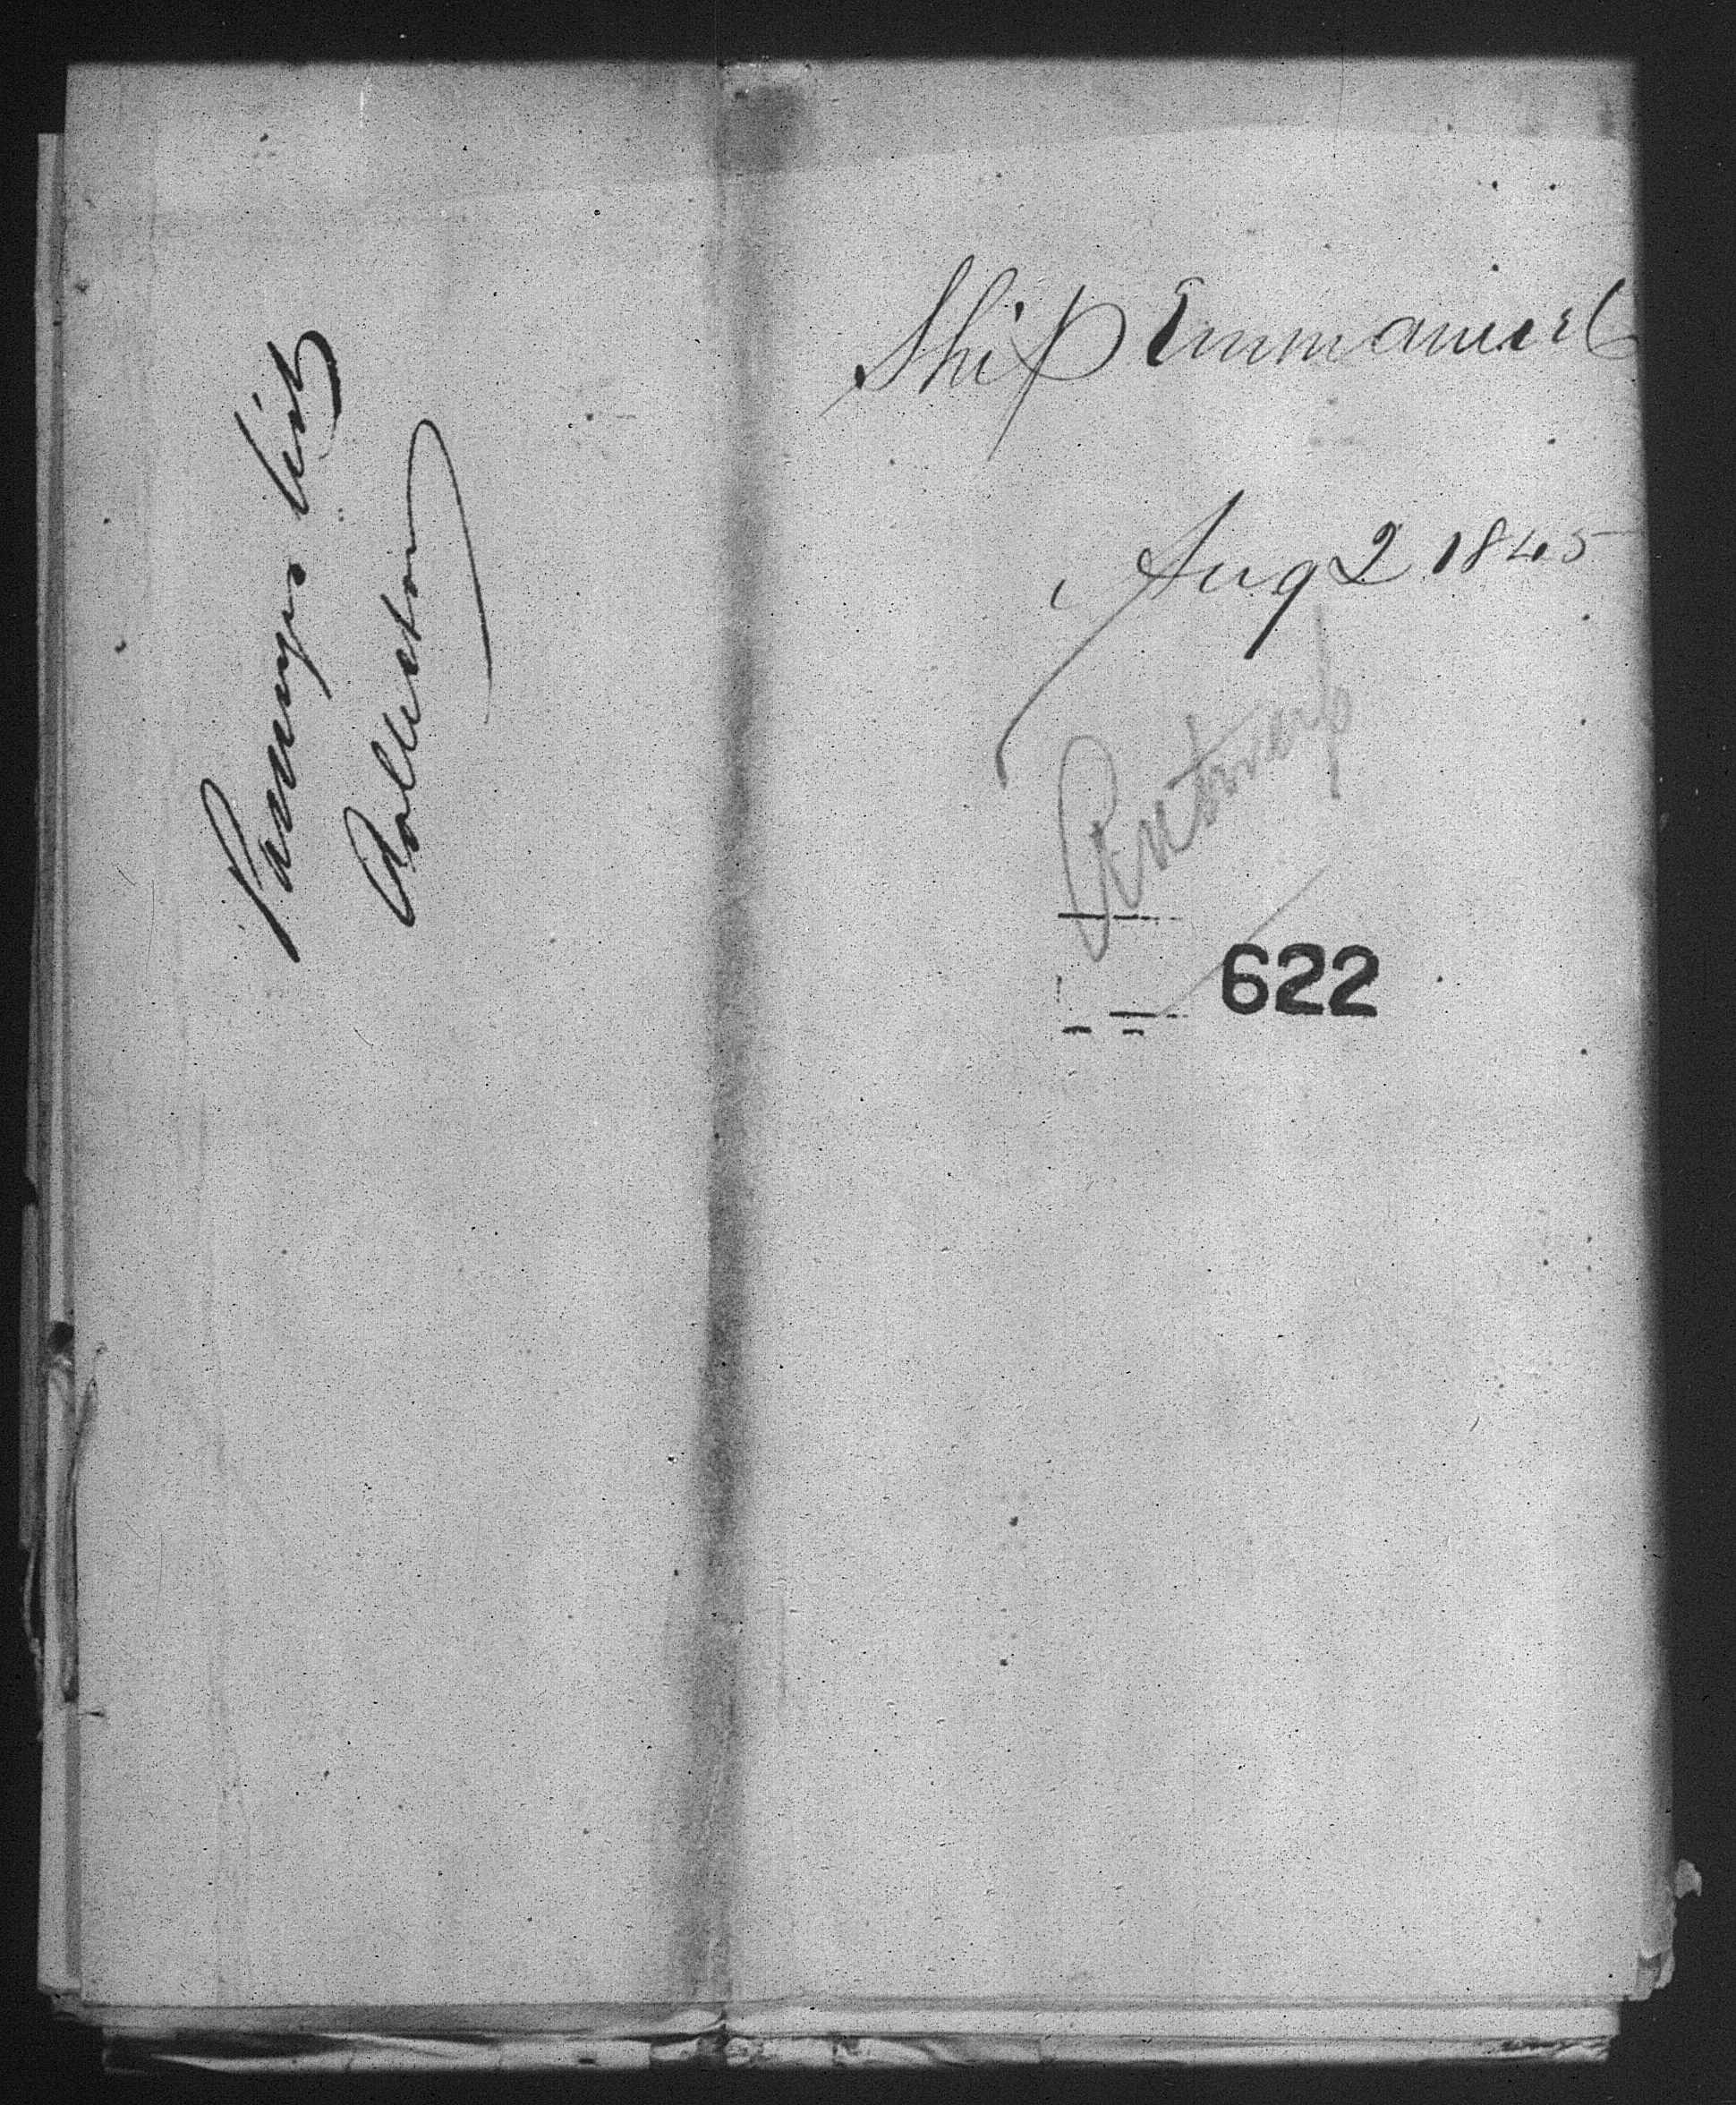 Passengers List
Collector
Ship Emmanuel
Aug 2 1845
Antwerp
622